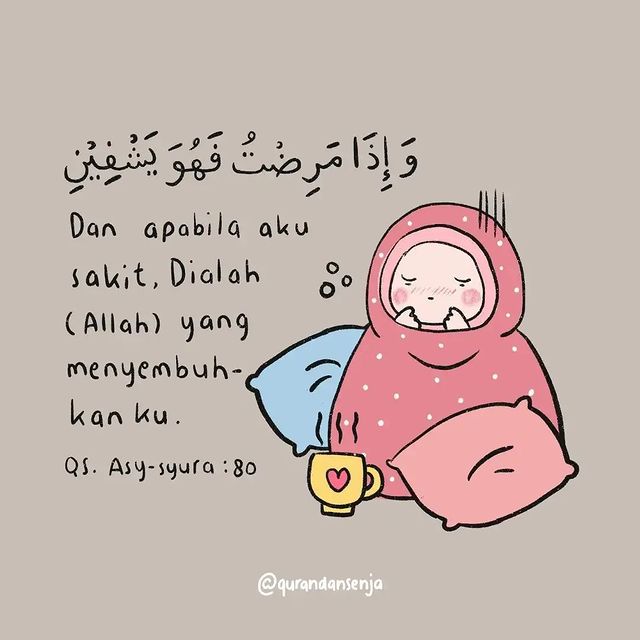 وَإِذَا مَرِضْتُ فَهُوَ يَشْفِيْنِ
Dan apabila aku
sakit, Dialah
(Allah) yang
menyembuh-
kan ku.
QS. Asy-syura : 80
@qurandansenja